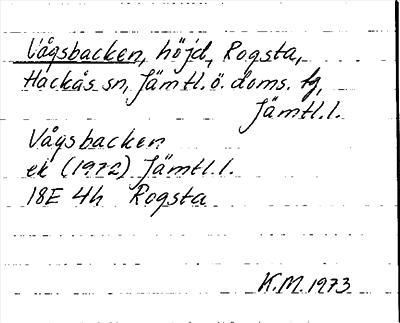 Vågsbacken, höjd, Rogsta,
Hackås sn, Jämtl. ö. doms. tg,
Jämtl. l.
Vågsbacken
ek (1972) Jämtl. l.
18E 4h Rogsta
K.M. 1973